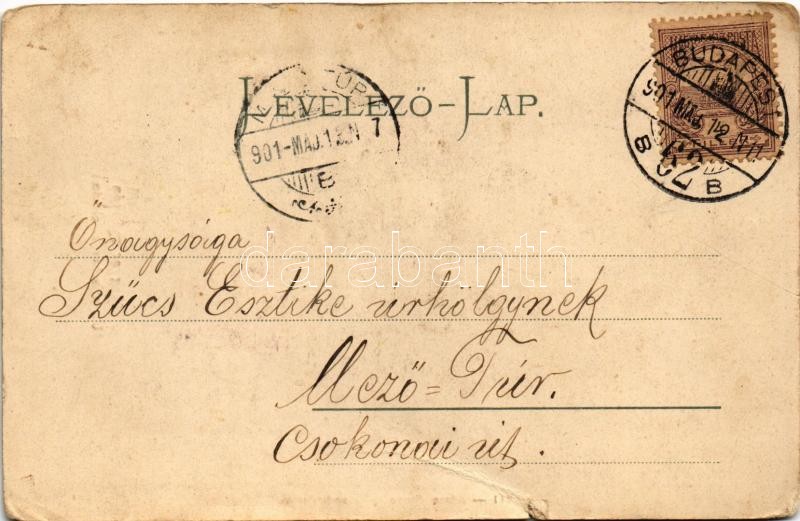 BUDAPEST
901 MÁJ
62
B
B
LEVELEZŐ-LAP.
TÚR
901-MÁJ.12.N 7
B
Őnagysága
darabanth
Szűcs Esztike úrhölgynek
Mező=Túr.
Csokonai út.